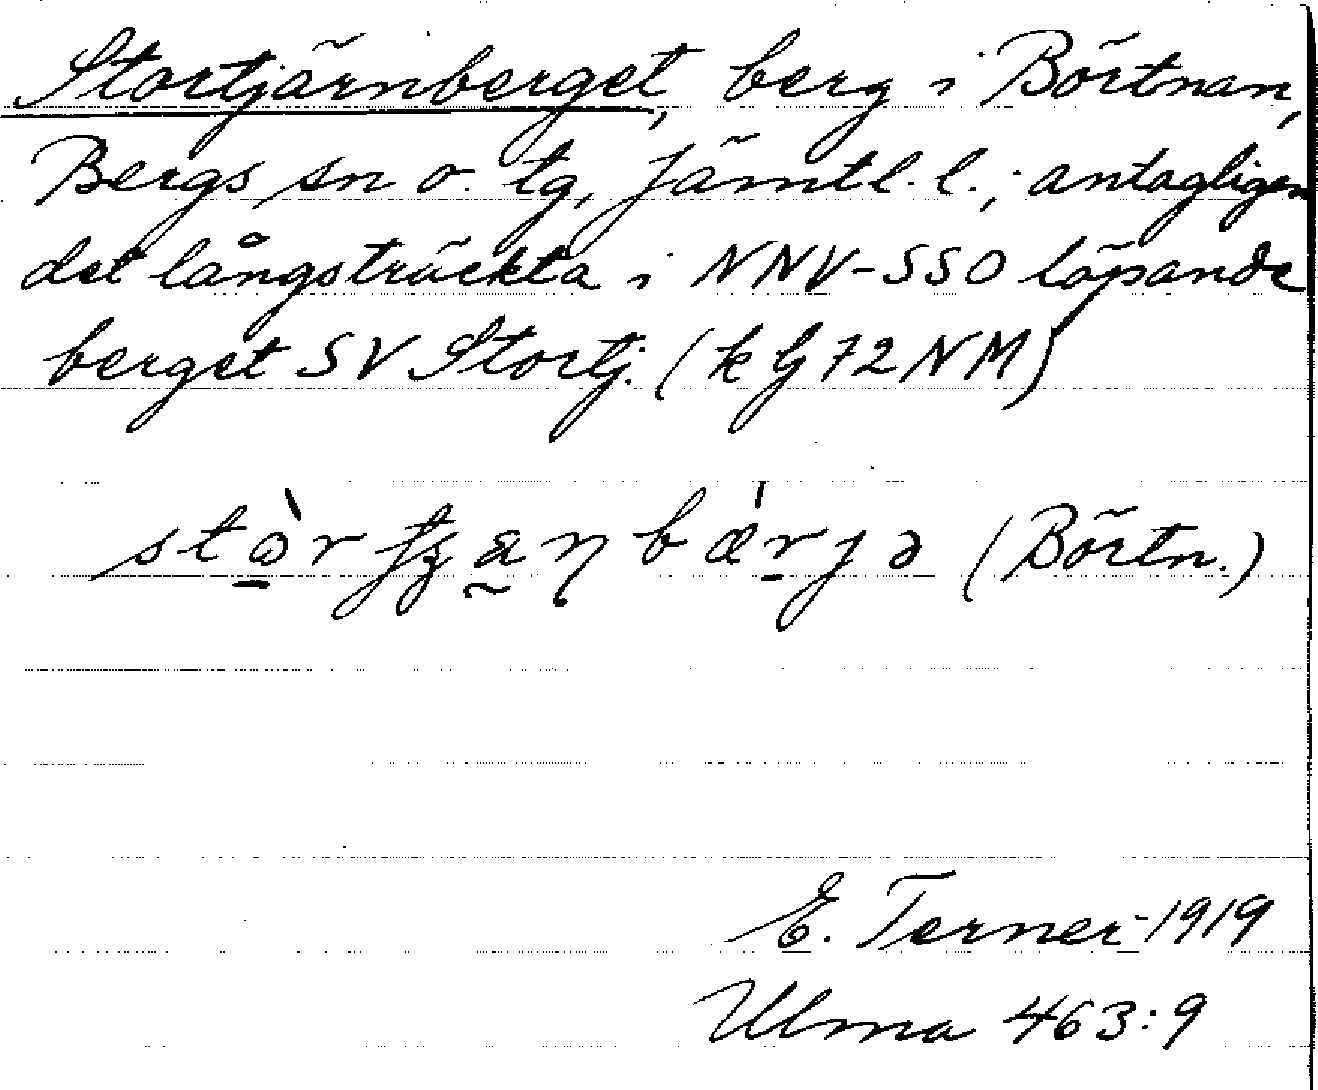 Stortjärnberget, berg i Börtnan,
Bergs sn o. tg, Jämtl. l.; antagligen
det långsträckta i NNV-SSO löpande
berget SV Stortj. (kbl 72 NM)
(Börtn.)
E. Terner 1919
Ulma 463:9